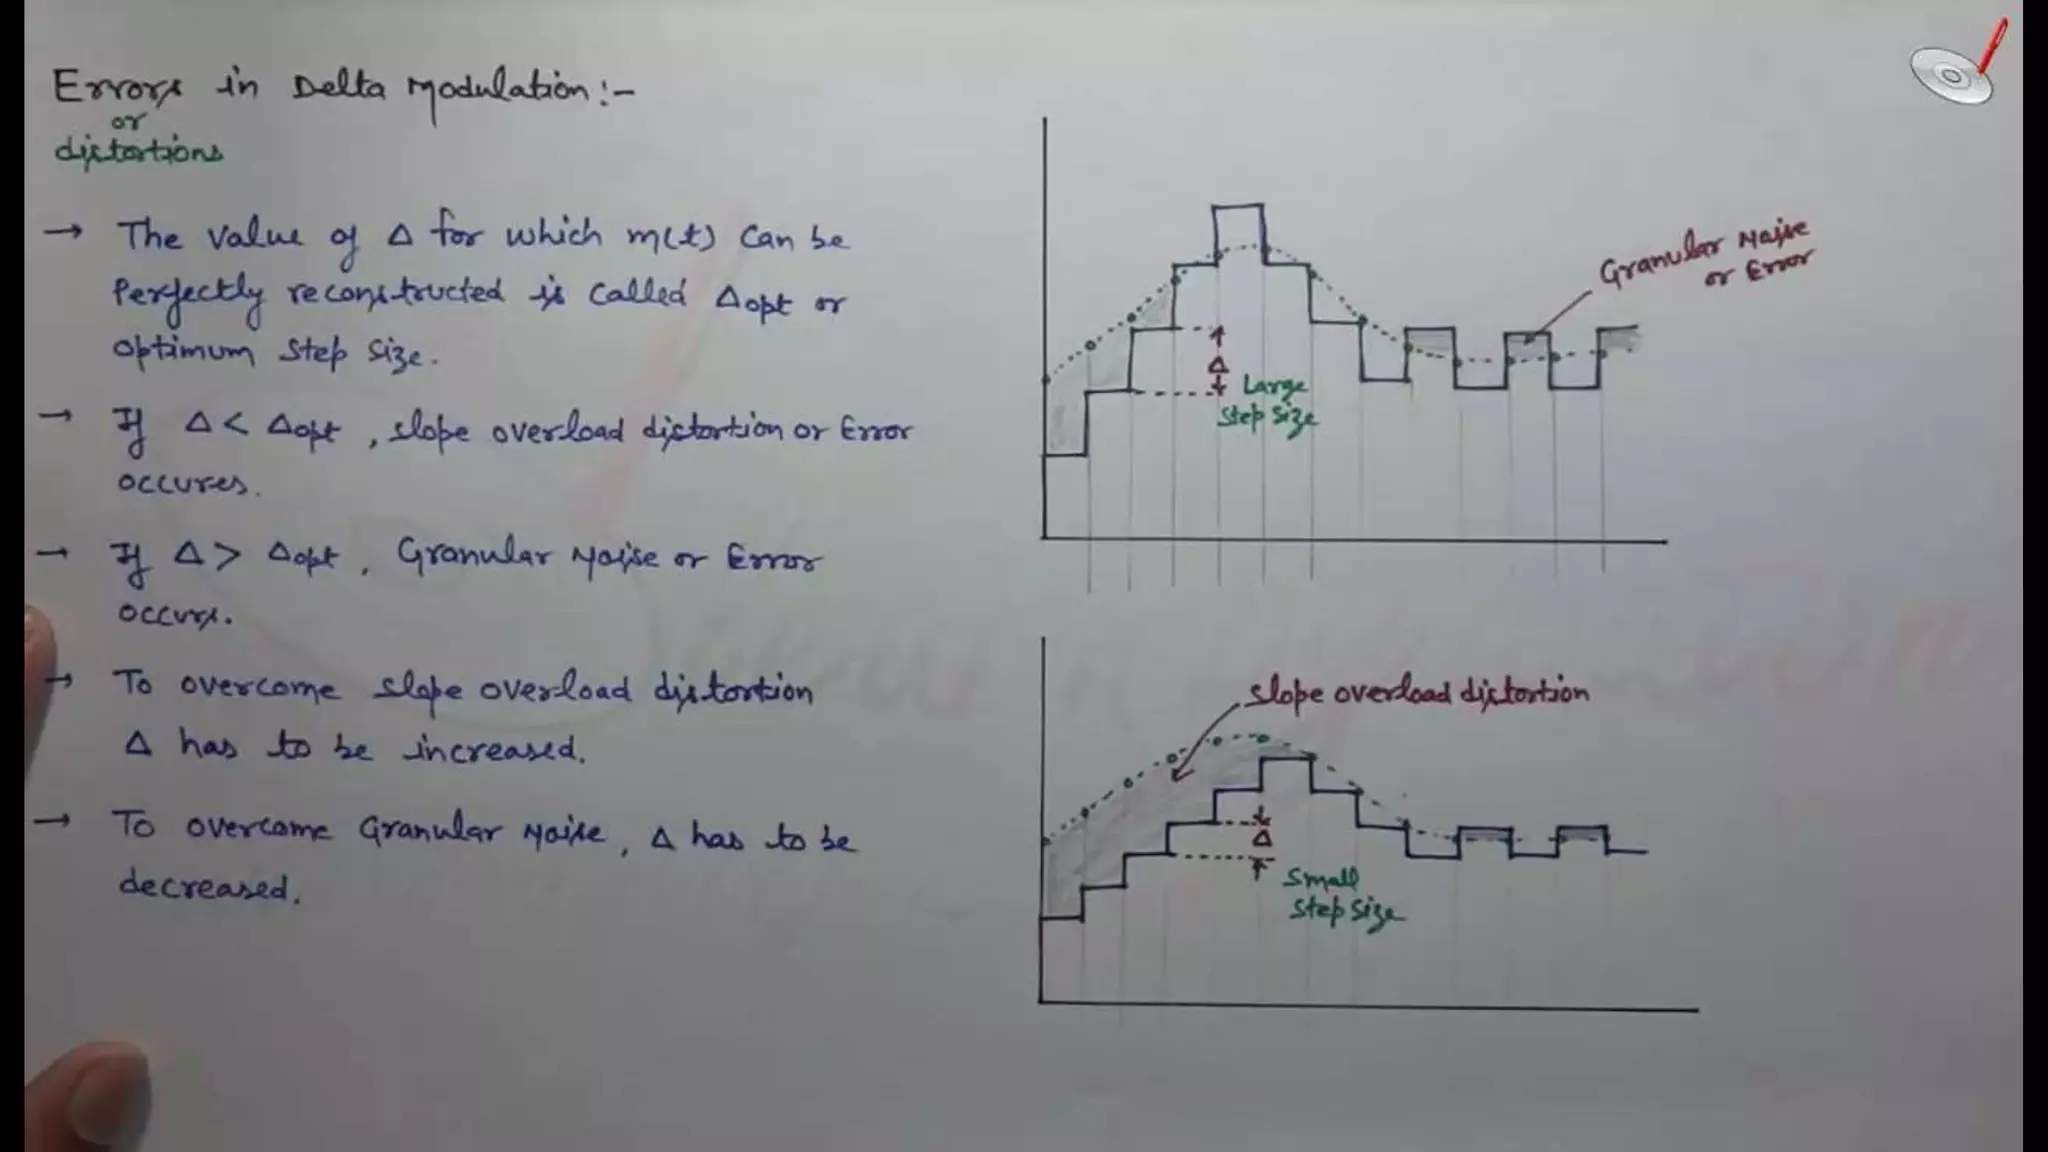 Errors in Delta Modulation:-
or
distortions
→ The value of Δ for which m(t) can be
Perfectly reconstructed is called Δopt or
optimum step size.
→ If Δ < Δopt, slope overload distortion or Error
occures.
→ If Δ > Δopt, Granular Noise or Error
occurs.
→ To overcome slope overload distortion
Δ has to be increased.
→ To overcome Granular Noise, Δ has to be
decreased.
Granular Noise
or Error
Δ
Large
Step size
slope overload distortion
Δ
Small
Step size